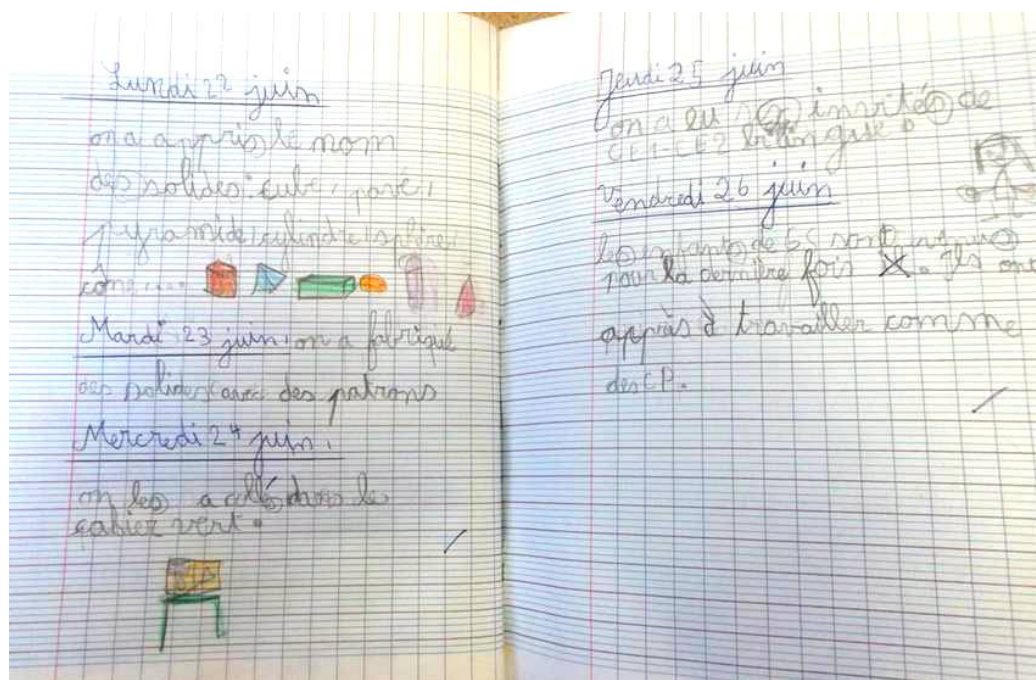 Lundi 22 juin
on a appris le nom
des solides : cube, pavé,
pyramide, cylindre, sphère,
cône....
Mardi 23 juin : on a fabriqué
des solides avec des patrons
Mercredi 24 juin.
on les a collés dans le
cahier vert.
Jeudi 25 juin
on a eu invités de
CE1-CE2 bilingue.
Vendredi 26 juin
les enfants de GS sont venus
pour la dernière fois. Ils ont
appris à travailler comme
des CP.